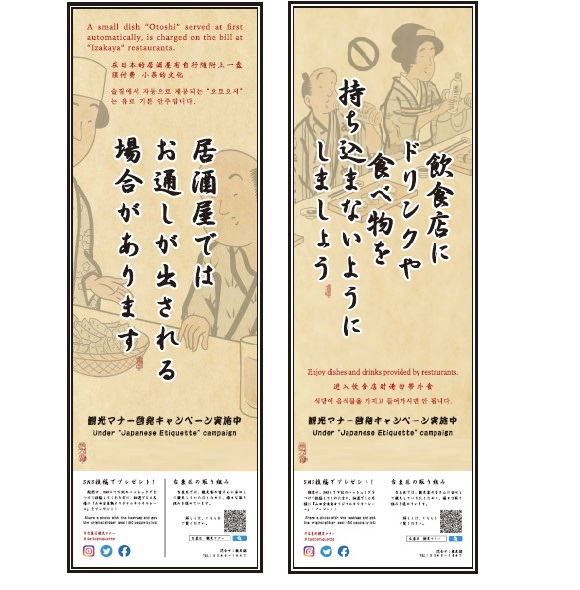 A small dish "Otoshi" served at first
automatically, is charged on the bill at
"Izakaya" restaurants.
在日本的居酒屋有自行随附上一盘
须付费 小菜的文化
술집에서 자동으로 제공되는 "오토오시"
는 유료 기본 안주입니다.
居酒屋では
お通しが出される
場合があります
観光マナー啓発キャンペーン実施中
Under "Japanese Etiquette" campaign
SNS投稿でプレゼント!
台東区の取り組み
Share a photo with the hashtag and get
台東区 観光マナー
飲食店に
ドリンクや
食べ物を
持ち込まないように
しましょう
Enjoy dishes and drinks provided by restaurants.
进入饮食店时请勿带外食
식당에 음식물을 가지고 들어가시면 안 됩니다.
観光マナー啓発キャンペーン実施中
Under "Japanese Etiquette" campaign
SNS投稿でプレゼント!
台東区の取り組み
Share a photo with the hashtag and get
台東区 観光マナー